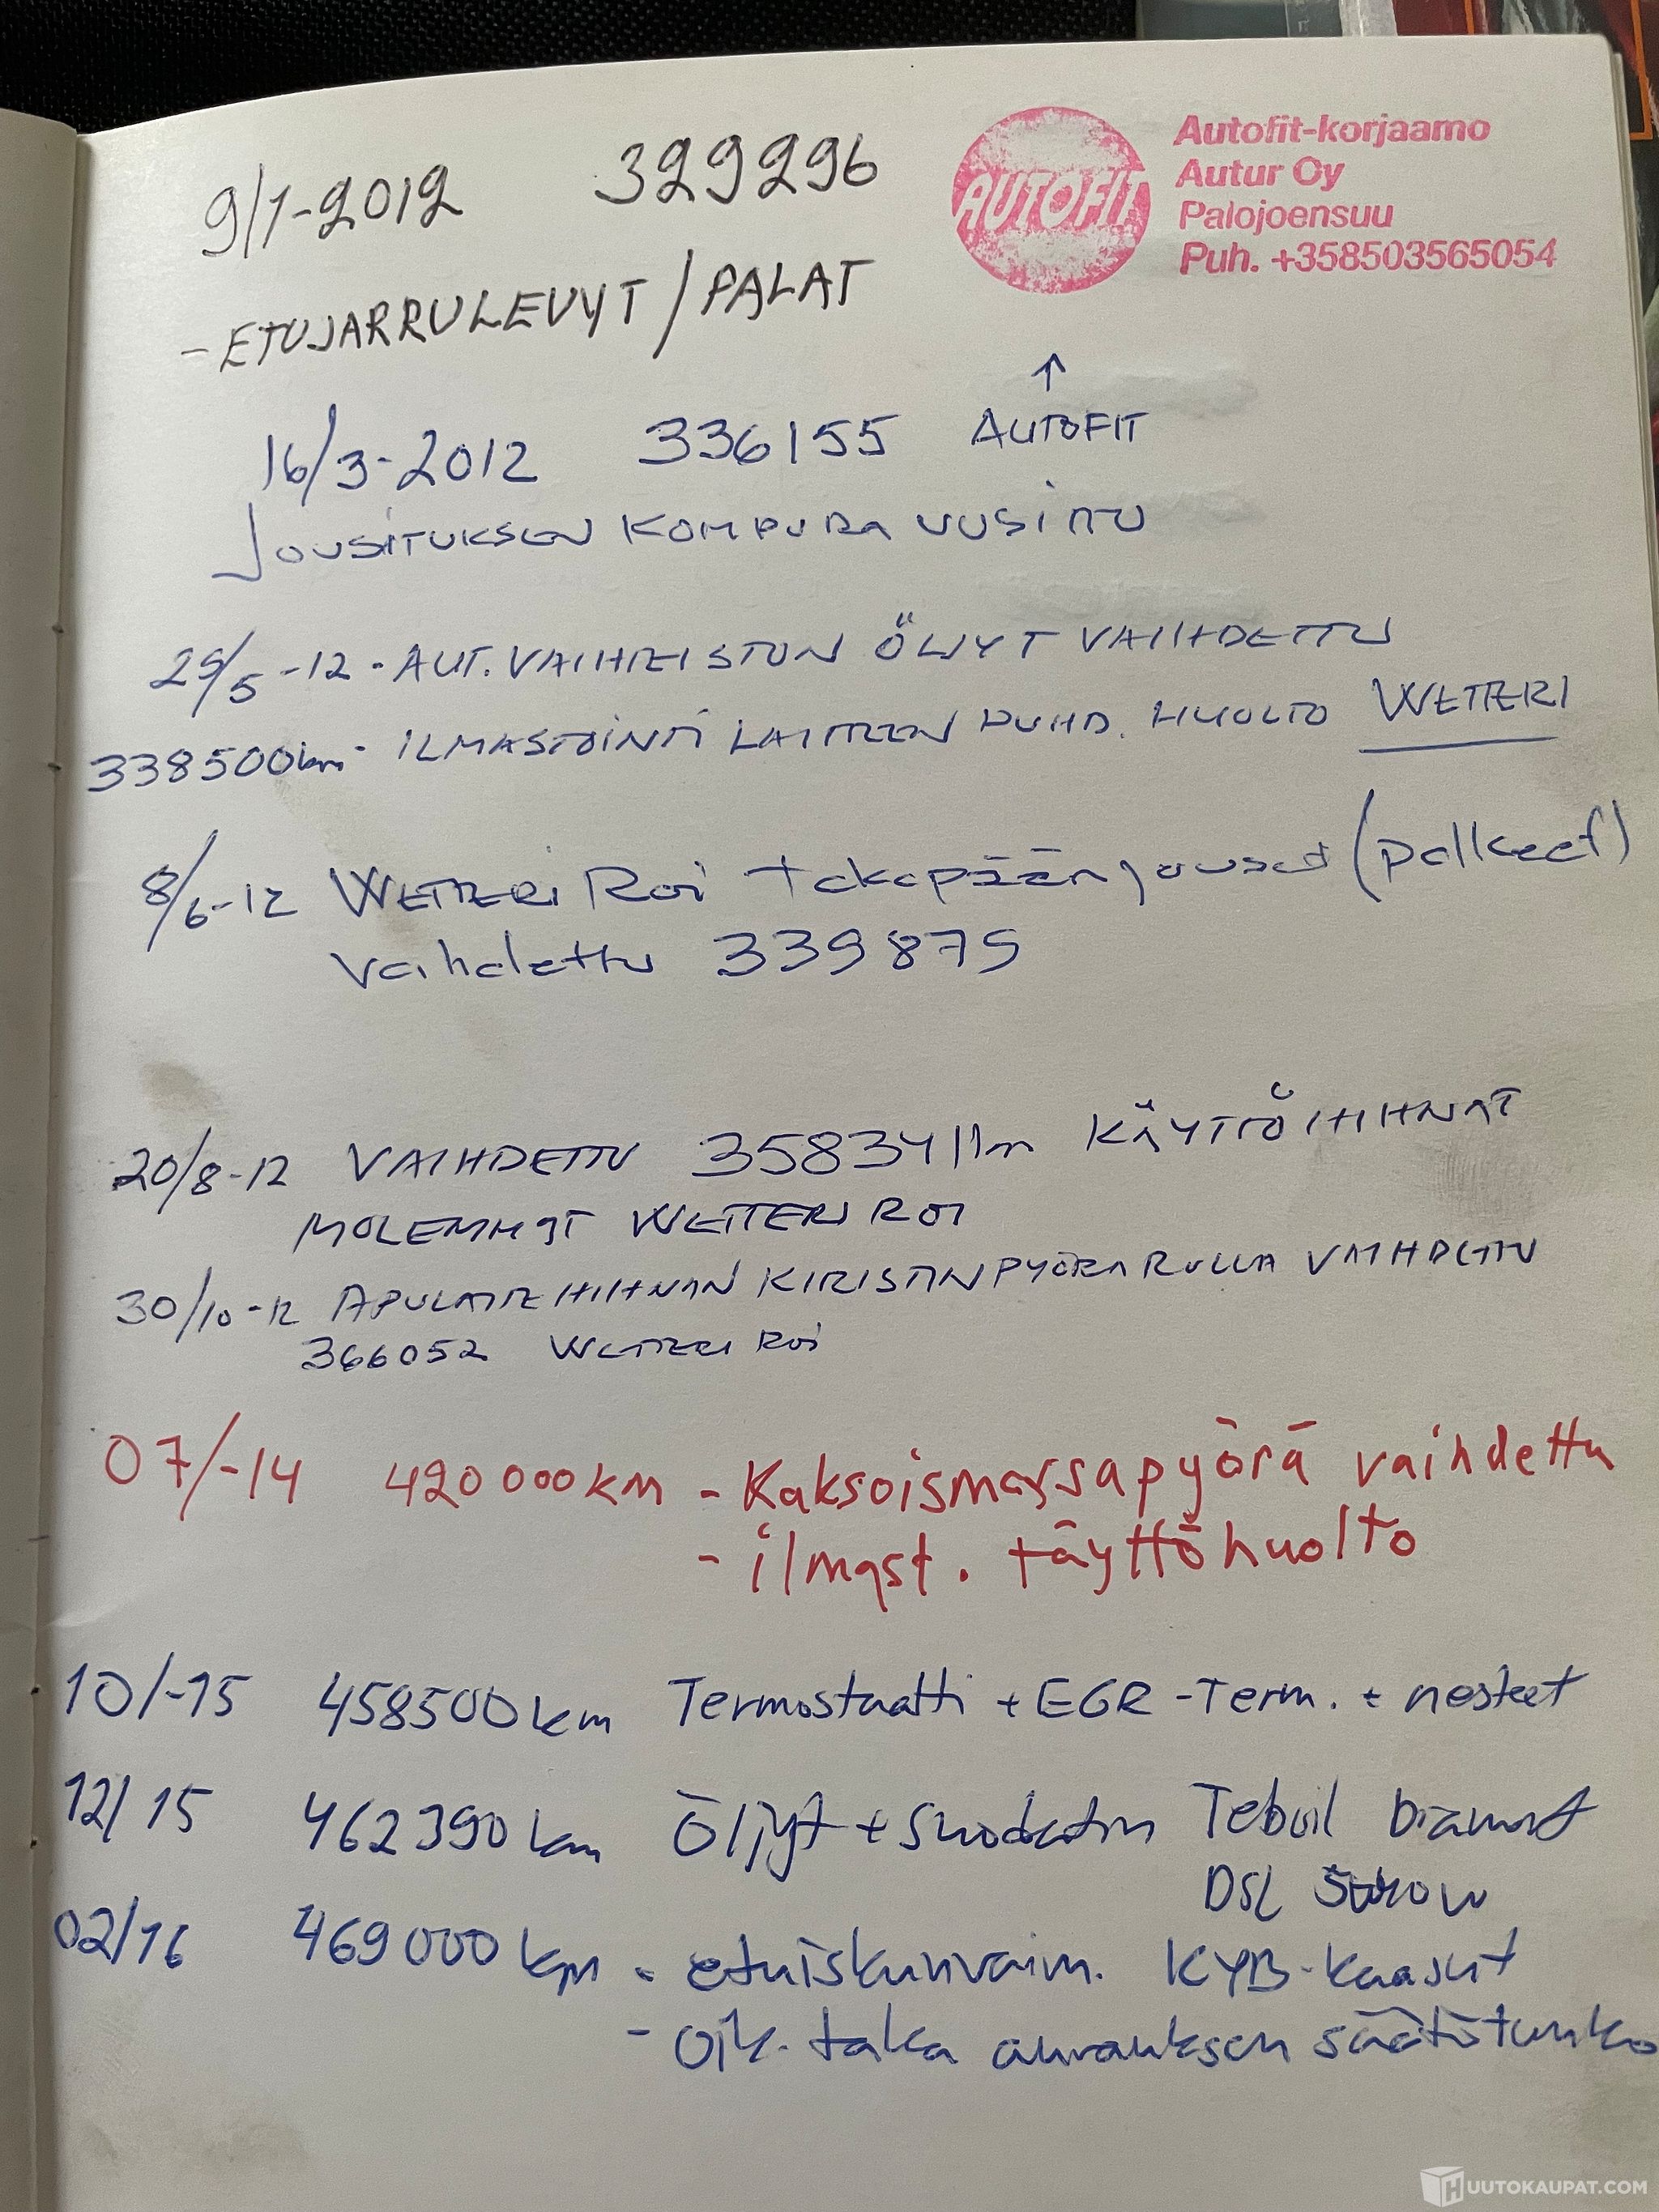 9/1-2012 329296
AUTOFIT
Autofit-korjaamo
Autur Oy
Palojoensuu
Puh. +358503565054
- ETUJARRULEVYT / PALAT
↑
16/3-2012 336155 AUTOFIT
JOUSITUKSEN KOMPURA UUSITTU
29/5-12 - AUT. VAIHTEISTON ÖLJYT VAIHDETTU
338500km - ILMASTOINTI LAITTEEN PUHD. HUOLTO WETTERI
8/6-12 WETTERI ROI takapään jouset (palkeet)
vaihdettu 339879
20/8-12 VAIHDETTU 358341km KÄYTTÖHIHNAT
MOLEMMAT WETTERI ROI
30/10-12 APULAITE HIHNAN KIRISTINPYÖRA RULLA VAIHDETTU
366052 WETTERI ROI
07/-14 420000km - Kaksoismassapyörä vaihdettu
- ilmast. täyttöhuolto
10/-15 458500km Termostaatti + EGR-Term. + nesteet
12/15 462390km Öljyt + suodatin Teboil Diamond
DSL 5W40
02/16 469000km - etuiskunvaim. KYB-kaasut
- oik. taka aurauksen säätötunko
HUUTOKAUPAT.COM